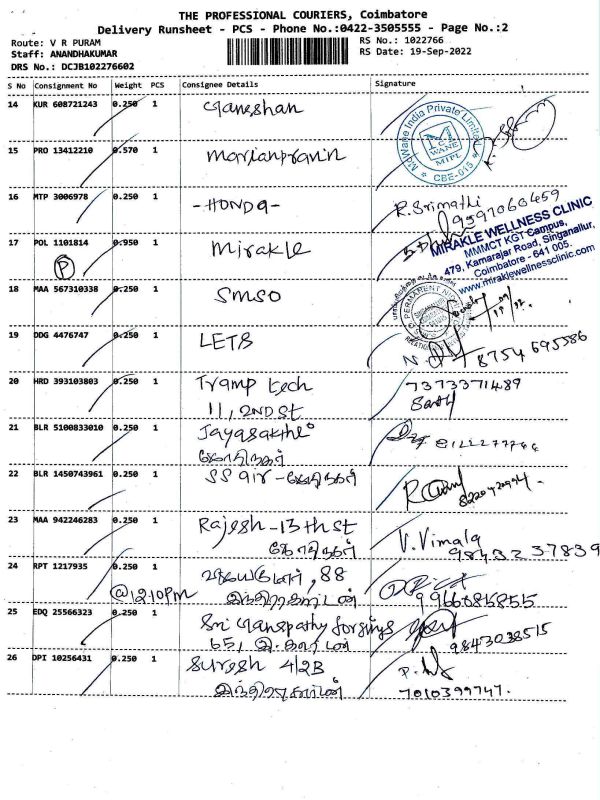 THE PROFESSIONAL COURIERS, Coimbatore
Delivery Runsheet - PCS - Phone No.:0422-3505555 - Page No.:2
Route: V R PURAM
Staff: ANANDHAKUMAR
DRS No.: DCJB102276602
RS No.: 1022766
RS Date: 19-Sep-2022
S No Consignment No Weight PCS Consignee Details Signature
14 KUR 608721243 0.250 1 Ganeshan
McWane India Private Limited
MC WANE
MIPL
* CBE-015 *
15 PRO 13412210 0.570 1 Marianpravin
16 MTP 3006978 0.250 1 -HONDA- R. Srimathi
9597060459
17 POL 1101814 0.950 1 Mirakle
P
MIRAKLE WELLNESS CLINIC
MMMCT KGT Campus,
479, Kamarajar Road, Singanallur,
Coimbatore - 641 005.
www.miraklewellnessclinic.com
18 MAA 567310338 0.250 1 SMSO
19 DDG 4476747 0.250 1 LETS 8754695586
20 HRD 393103803 0.250 1 Tramp tech 7373371489
11, 2ND St
21 BLR 5100833010 0.250 1 Jayasakthi
22 BLR 1450743961 0.250 1 SS air -
23 MAA 942246283 0.250 1 Rajesh - 13th St V. Vimala
98432 37839
24 RPT 1217935 0.250 1 , 88
@12.10pm 9966085855
25 EDQ 25566323 0.250 1 Sri Ganapathy forgings
65, 9843038515
26 DPI 10256431 0.250 1 Suresh 4/2B
7010399747.